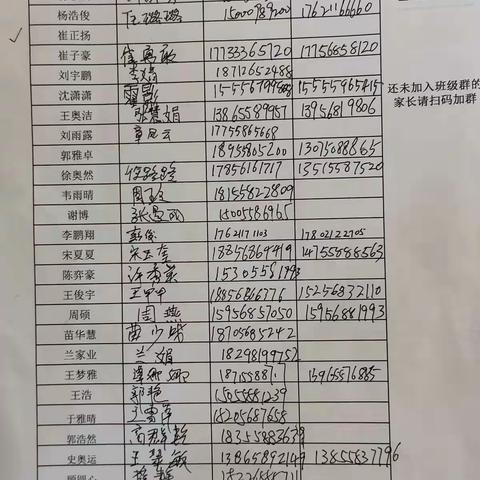 杨浩俊 15000789200 17621166660
崔正扬
崔子豪 17733365720 17756858120
刘宇鹏 李婧 18712652488
沈潇潇 15555679988 15555965415
王奥洁 郭慧娟 13865589957 13956819806
刘雨露 章凡云 17755865668
郭雅卓 18955805200 13075088865
徐奥然 17856161717 13515587520
韦雨晴 周玉玲 18155822809
谢博 15005586965
李鹏翔 彭俊 17621171103 17802122705
宋夏夏 宋玉奎 18856869419 14755588563
陈弈豪 许秀英 15305581793
王俊宇 王甲甲 18856866776 15256832110
周硕 周燕 15956857050 15956881993
苗华慧 苗少峰 18705685242
兰家业 兰娟 18298199752
王梦雅 1871558871 13955576885
王浩 郭艳 15055881239
于雅晴 18205687658
郭浩然 18355883639
史奥运 王慧敏 13865892149 13855837796
顾圆心
还未加入班级群的
家长请扫码加群